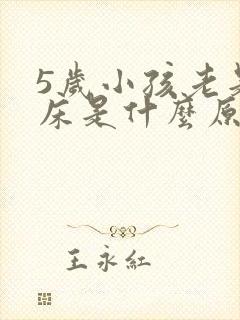 5歲小孩老
床是什麼原
王永紅